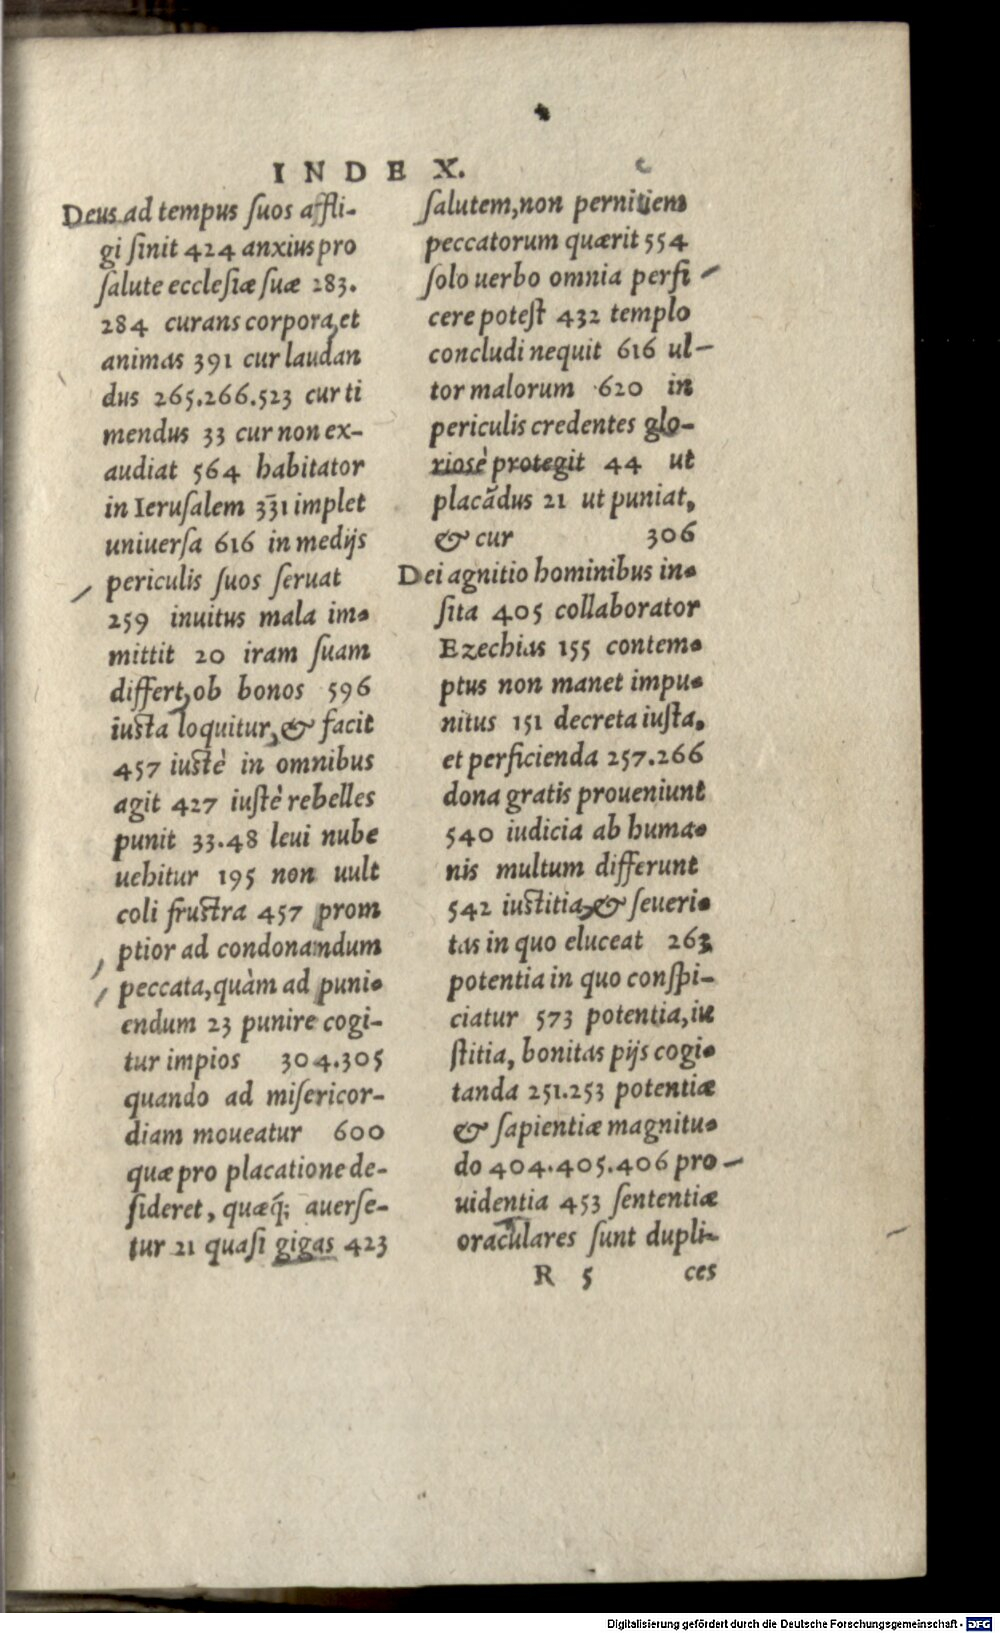 INDEX.
Deus ad tempus suos affli-
gi sinit 424 anxius pro
salute ecclesiæ suæ 283.
284 curans corpora, et
animas 391 cur laudan
dus 265.266.523 cur ti
mendus 33 cur non ex-
audiat 564 habitator
in Ierusalem 331 implet
uniuersa 616 in medijs
periculis suos seruat
259 inuitus mala im-
mittit 20 iram suam
differt, ob bonos 596
iusta loquitur, & facit
457 iustè in omnibus
agit 427 iustè rebelles
punit 33.48 leui nube
uehitur 195 non uult
coli frustra 457 prom
ptior ad condonandum
peccata, quàm ad puni-
endum 23 punire cogi-
tur impios 304.305
quando ad misericor-
diam moueatur 600
quæ pro placatione de-
sideret, quæq́; auerse-
tur 21 quasi gigas 423
salutem, non pernitiem
peccatorum quærit 554
solo uerbo omnia perfi
cere potest 432 templo
concludi nequit 616 ul-
tor malorum 620 in
periculis credentes glo-
riosè protegit 44 ut
placãdus 21 ut puniat,
& cur 306
Dei agnitio hominibus in-
sita 405 collaborator
Ezechias 155 contem-
ptus non manet impu-
nitus 151 decreta iusta,
et perficienda 257.266
dona gratis proueniunt
540 iudicia ab huma-
nis multum differunt
542 iustitia, & seueri-
tas in quo eluceat 263
potentia in quo conspi-
ciatur 573 potentia, iu
stitia, bonitas pijs cogi-
tanda 251.253 potentiæ
& sapientiæ magnitu-
do 404.405.406 pro-
uidentia 453 sententiæ
oraculares sunt dupli-
R 5 ces
Digitalisierung gefördert durch die Deutsche Forschungsgemeinschaft - DFG